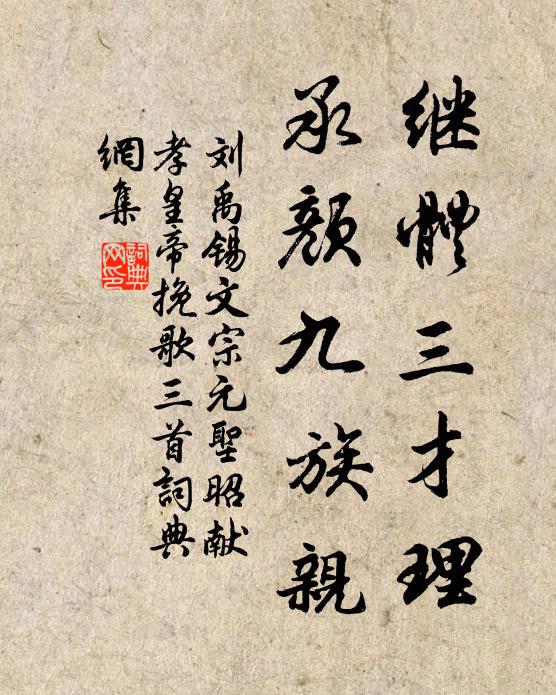 继體三才理
承颜九族親
刘禹锡文宗元聖昭献
孝皇帝挽歌三首詞典
網集
詞典网印